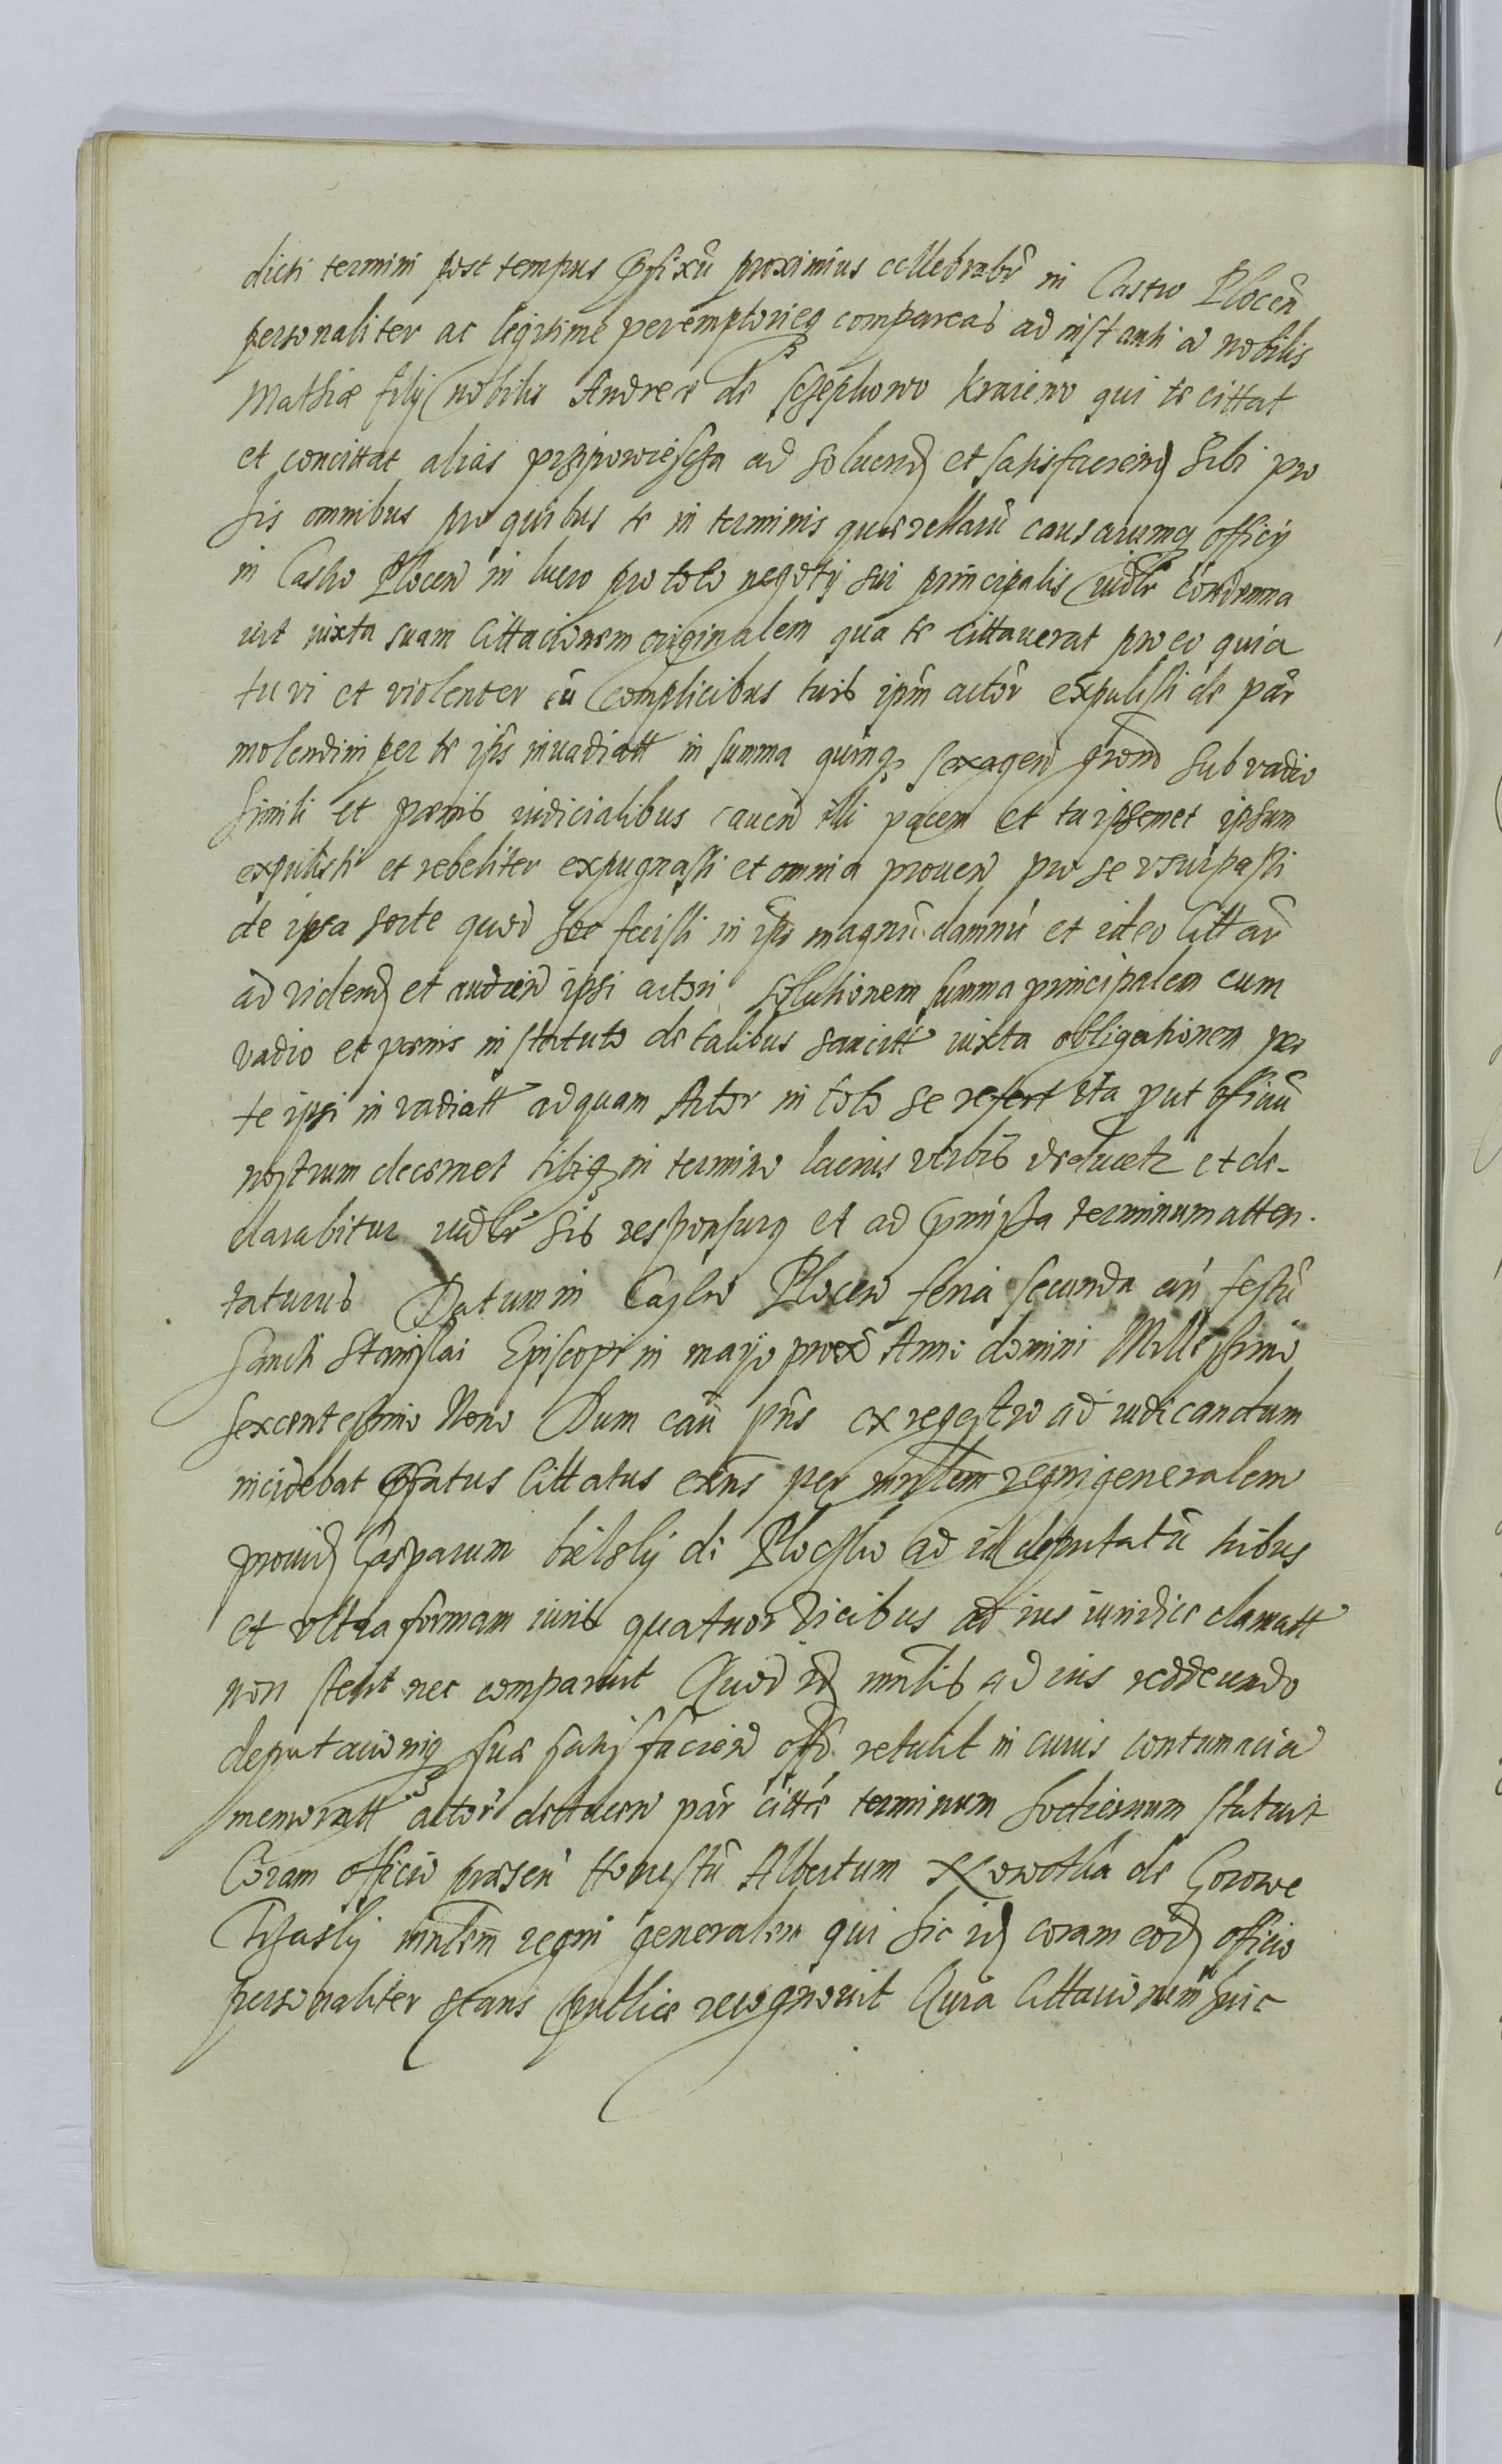 dicti termini post tempus pfixū proximius cellebrabr̄ in Castro Plocen̄
personaliter ac legitime peremptorieq compareas ad instantia nobilis
Mathiæ filij nobilis Andreæ de Kraiewo qui te cittat
et concittat alias przipowiescza ad soluend et satisfaciend sibi pro
his omnibus pro quibus te in terminis quærellarū causarumq officij
in Castro Plocen in lucro pro toto negotij sui principalis vidlr condemna
uit iuxta suam Cittacionem originalem qua te Cittauerat pro eo quia
tu vi et violenter cū complicibus tuis ipm̄ actōr expulisti de par̄
molendini per te ipsi inuadiatt in summa quinq sexagen grono sub vadio
simili et pœnis iudicialibus cauen illi pacem et tu ipsemet ipsum
expulisti et rebeliter expugnasti et omnia prouen pro se vsurpasti
de ipsa sorte quod hoc fecisti in ips magnū damnū et ideo Cittar̄
ad videnđ et audien ipsi actori solutionem summa principalem cum
vadio et pœnis in statuto de talibus sancitt iuxta obligationem per
te ipsi in vadiatt ad quam Actor in toto se refert ita put officiū
nostrum decernet tibiq in termino lacius verbis deducetr et de-
clarabitur vidlr sis responsurq et ad pmissa terminum atten-
taturus Datum in Castro Plocen feria secunda an̄ festū
sancti Stanislai Episcopi in mayo prox Anno domini Millessimo
sexcentessimo Nono Dum caū pn̄s ex regestro ad iudicandum
incidebat pfatus Cittatus exn̄s per mnlem regni generalem
prouid Gasparum bielsky de Ploczko ad id deputatū tribus
et vltra formam iuris quatuor vicibus ad ius iuridice clamatt
non stetit nec comparuit Quod id mnlis ad ius reddeundo
deputacioniq suæ satisfacien offo retulit in cuius contumacia
memoratt actōr deducen par citte terminum hodiernum statuit
Coram officio præsen Honestū Albertum de Gorowe
mnlem regni generalem qui hic id coram eod officio
personaliter stans publice recognouit Quia Cittacionem huic